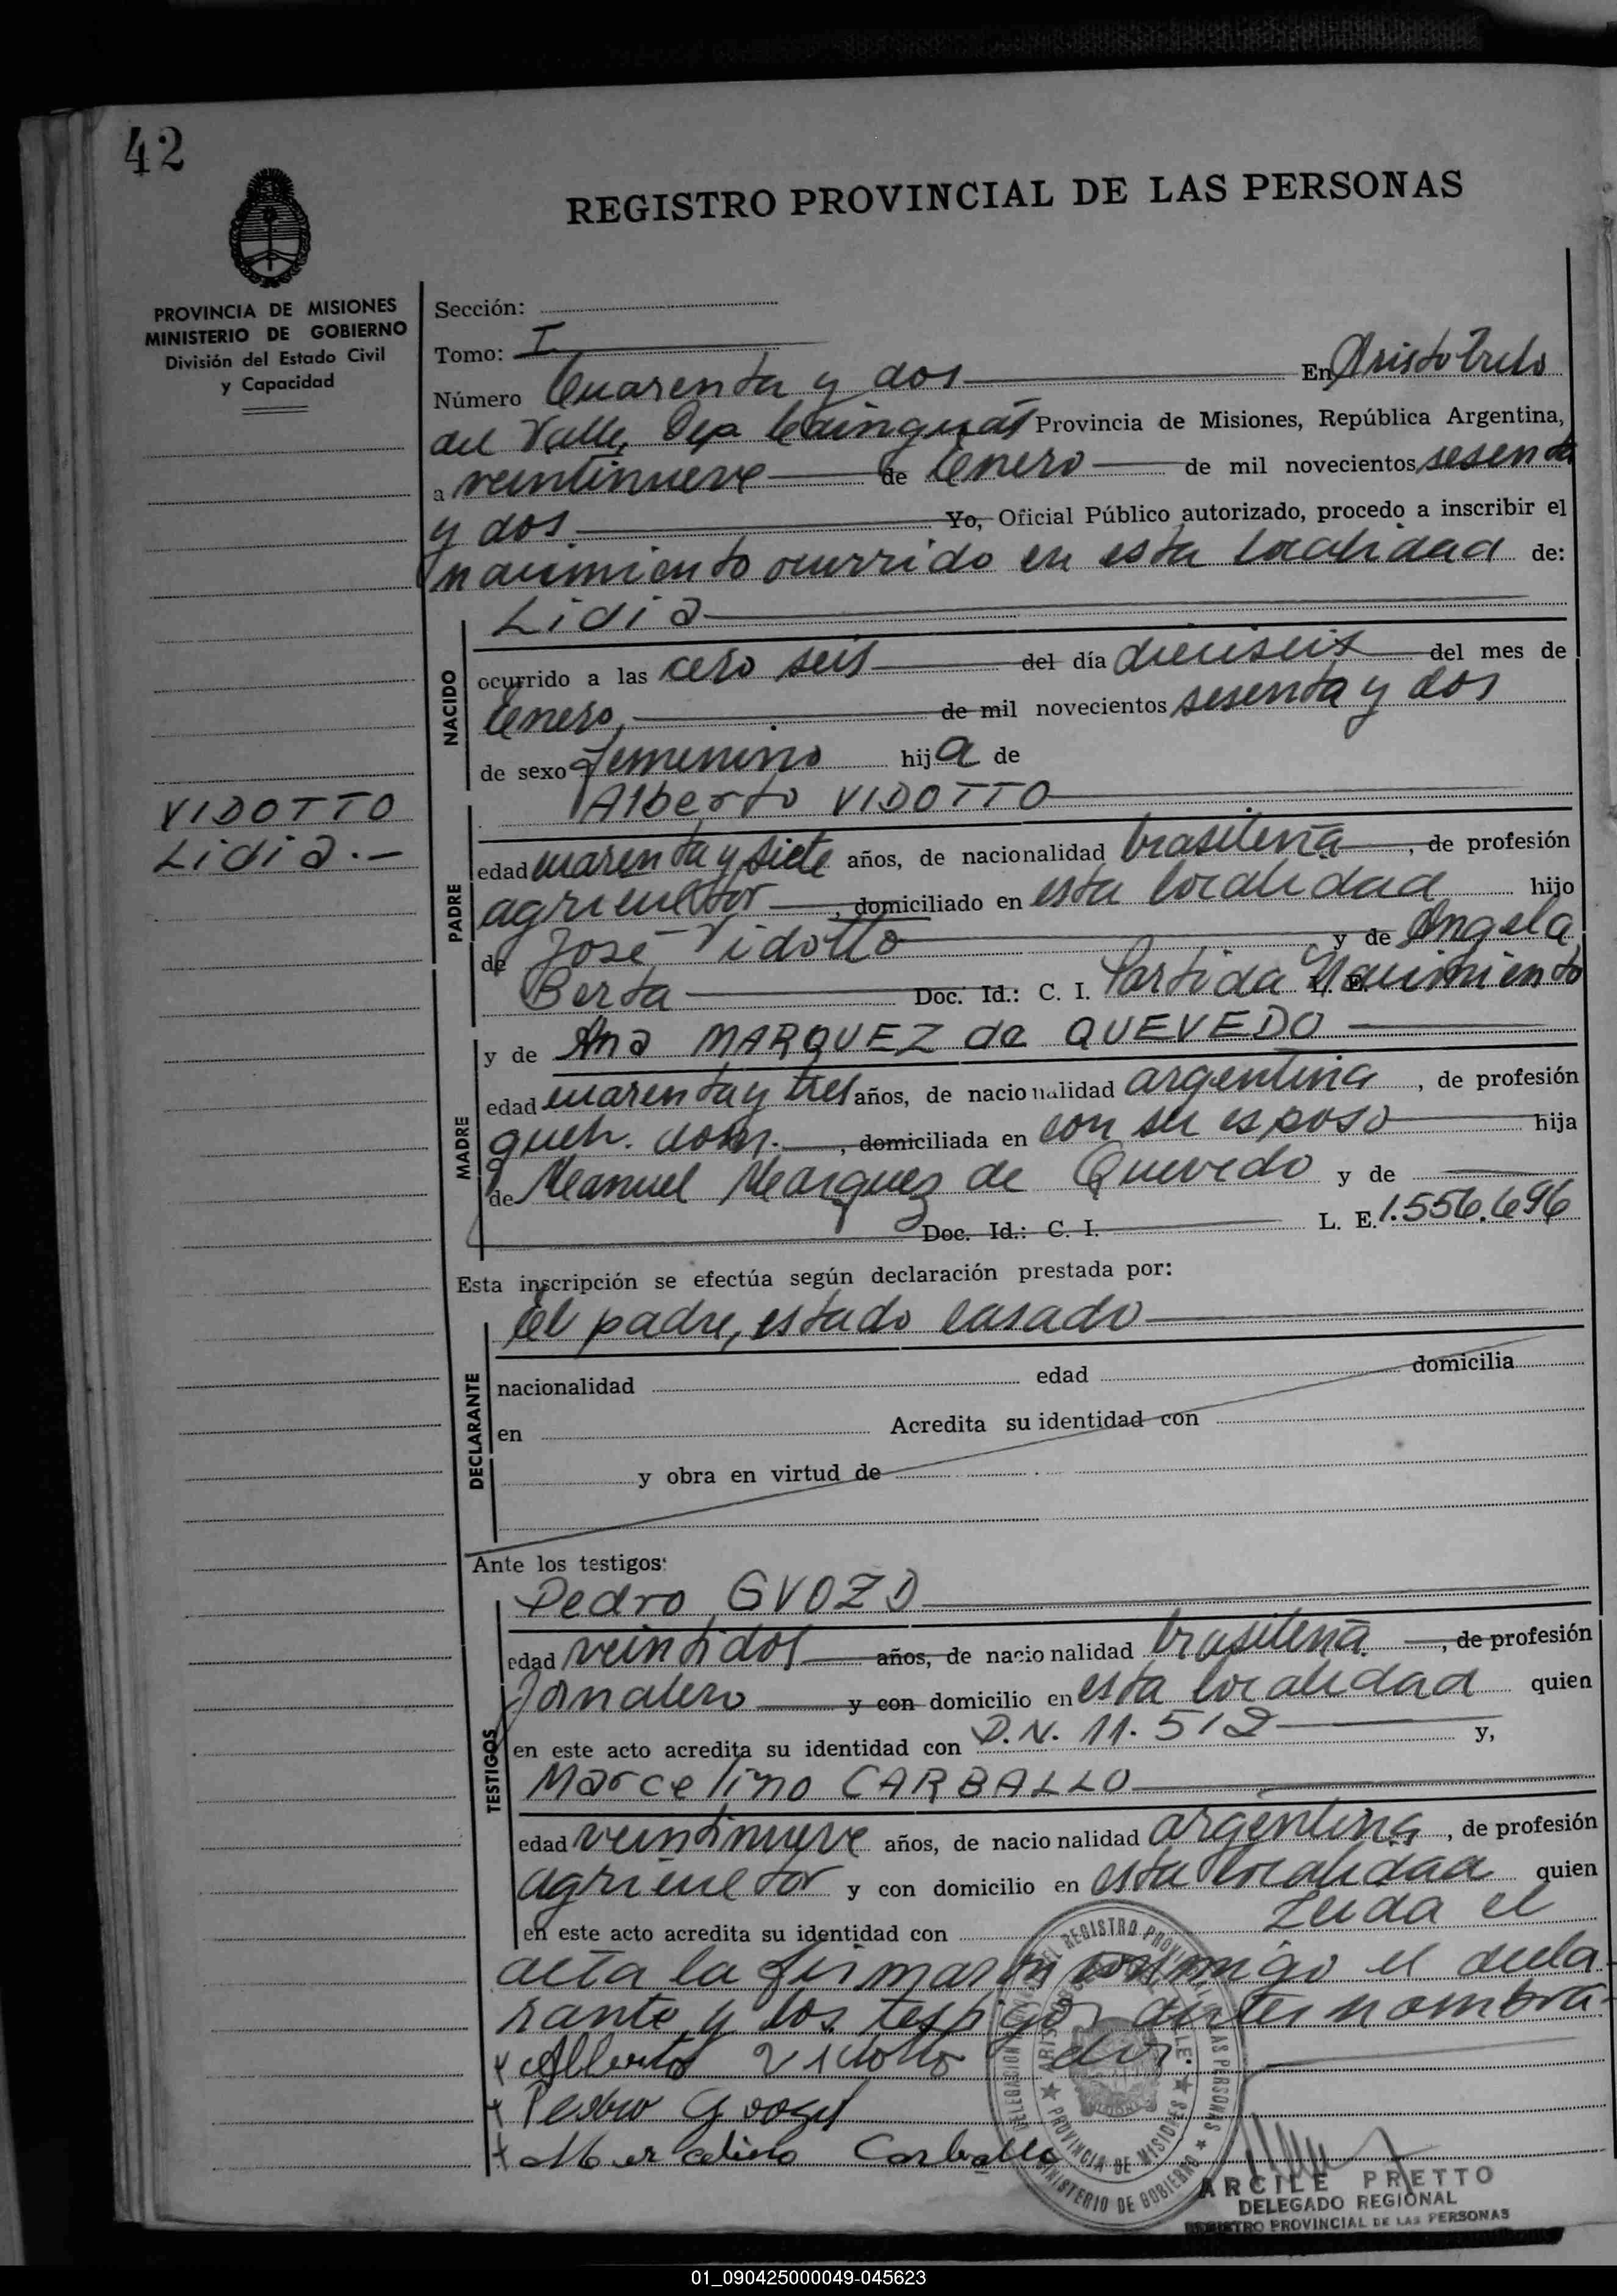 42
REGISTRO PROVINCIAL DE LAS PERSONAS
PROVINCIA DE MISIONES
MINISTERIO DE GOBIERNO
División del Estado Civil
y Capacidad
Sección:
Tomo: I
Número Cuarenta y dos En Aristobulo
del Valle, Dep Cainguás Provincia de Misiones, República Argentina,
a veintinueve de Enero de mil novecientos sesenta
y dos Yo, Oficial Público autorizado, procedo a inscribir el
nacimiento ocurrido en esta localidad de:
Lidia
NACIDO
ocurrido a las cero seis del día dieciseis del mes de
Enero, de mil novecientos sesenta y dos
de sexo femenino hija de
Alberto VIDOTTO
VIDOTTO
Lidia.-
PADRE
edad cuarenta y siete años, de nacionalidad brasileña, de profesión
agricultor, domiciliado en esta localidad hijo
de José Vidotto y de Angela
Berta Doc. Id.: C. I. Partida Nacimiento
MADRE
y de Ana MARQUEZ de QUEVEDO
edad cuarenta y tres años, de nacionalidad argentina, de profesión
queh. dom., domiciliada en con su esposo hija
de Manuel Marquez de Quevedo y de
Doc. Id.: C. I. L. E. 1.556.696
Esta inscripción se efectúa según declaración prestada por:
el padre, estado casado
DECLARANTE
nacionalidad edad domicilia
en Acredita su identidad con
y obra en virtud de
Ante los testigos:
TESTIGOS
Pedro GVOZD
edad veintidos años, de nacionalidad brasileña, de profesión
Jornalero y con domicilio en esta localidad quien
en este acto acredita su identidad con D.N. 11.512 y,
Marcelino CARBALLO
edad veintinueve años, de nacionalidad argentina, de profesión
agricultor y con domicilio en esta localidad quien
en este acto acredita su identidad con Leida el
acta la firmaron conmigo el decla-
rante y los testigos antes nombra-
dos.
Alberto Vidotto
Pedro Gvozd
Marcelino Carballo
ARCILE PRETTO
DELEGADO REGIONAL
REGISTRO PROVINCIAL DE LAS PERSONAS
01_090425000049-045623